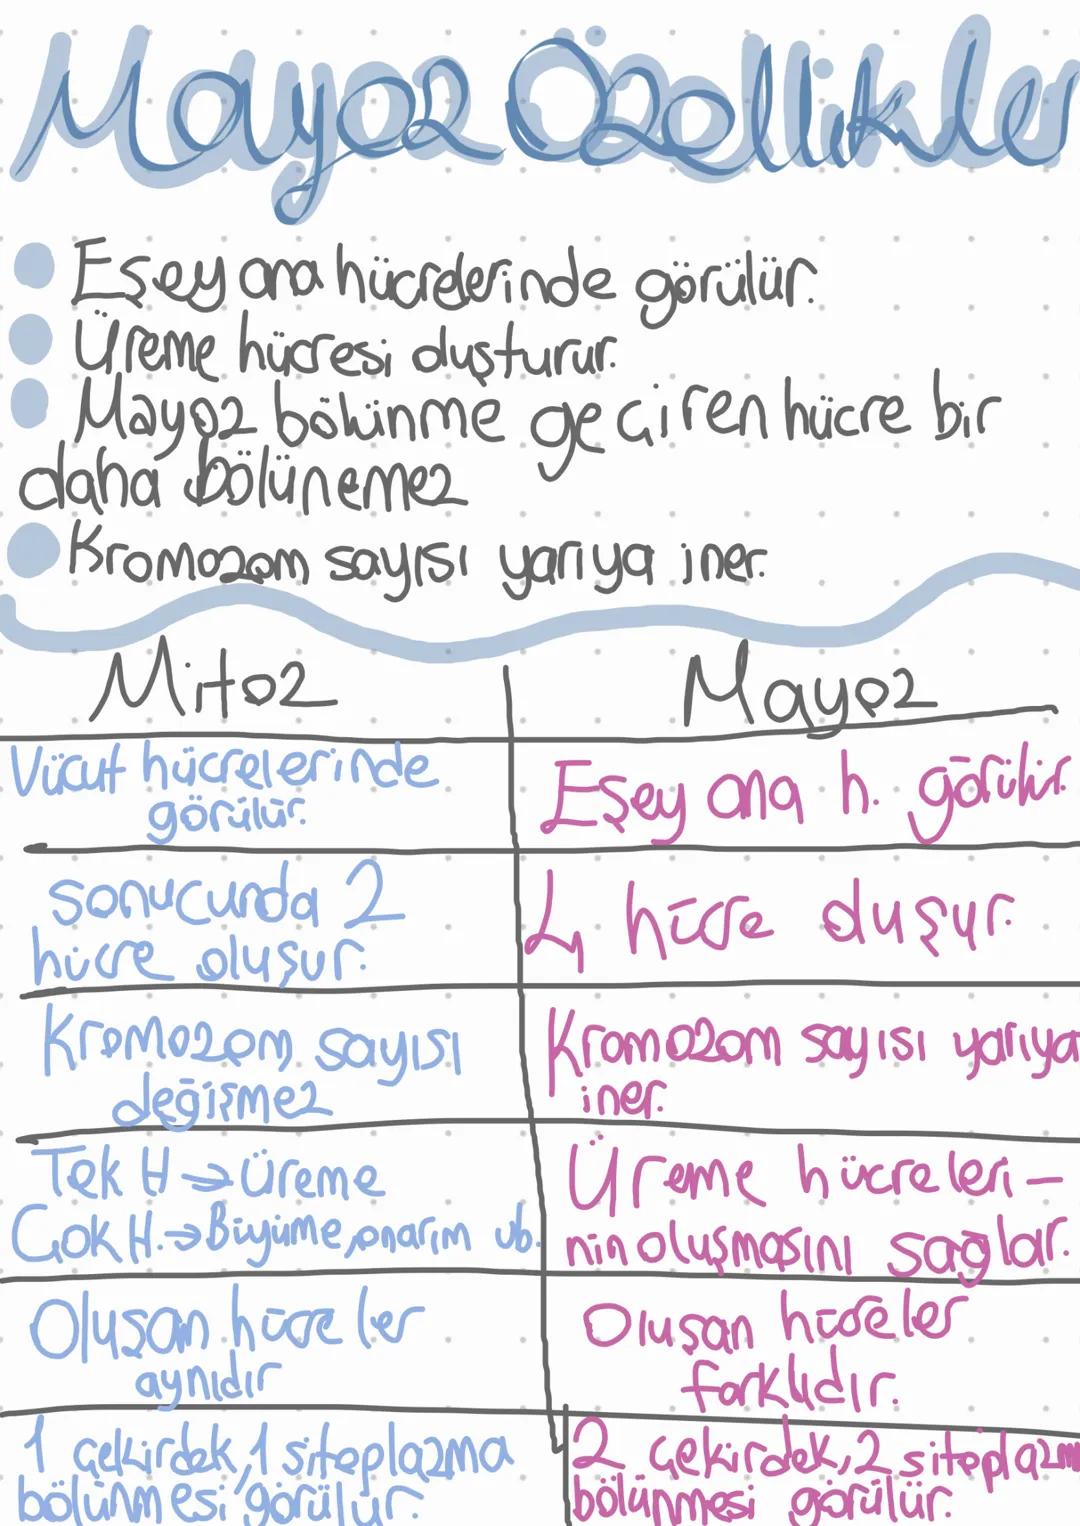 Mayoz Özellikler
Eşey ana hücrelerinde görülür.
Üreme hücresi oluşturur.
Mayoz bölünme geçiren hücre bir
daha bölünemez
Kromozom sayısı yarıya iner.
Mitoz
Mayoz
Vücut hücrelerinde
görülür.
Eşey ana h. görülür.
Sonucunda 2
hücre oluşur.
4 hücre oluşur.
Kromozom sayısı
değişmez
Kromozom sayısı yarıya
iner.
Tek H → Üreme
Çok H. → Büyüme, onarım vb.
Üreme hücreleri-
nin oluşmasını sağlar.
Oluşan hücreler
aynıdır
Oluşan hücreler
farklıdır.
1 çekirdek, 1 sitoplazma
bölünmesi görülür.
2 çekirdek, 2 sitoplazm
bölünmesi görülür.